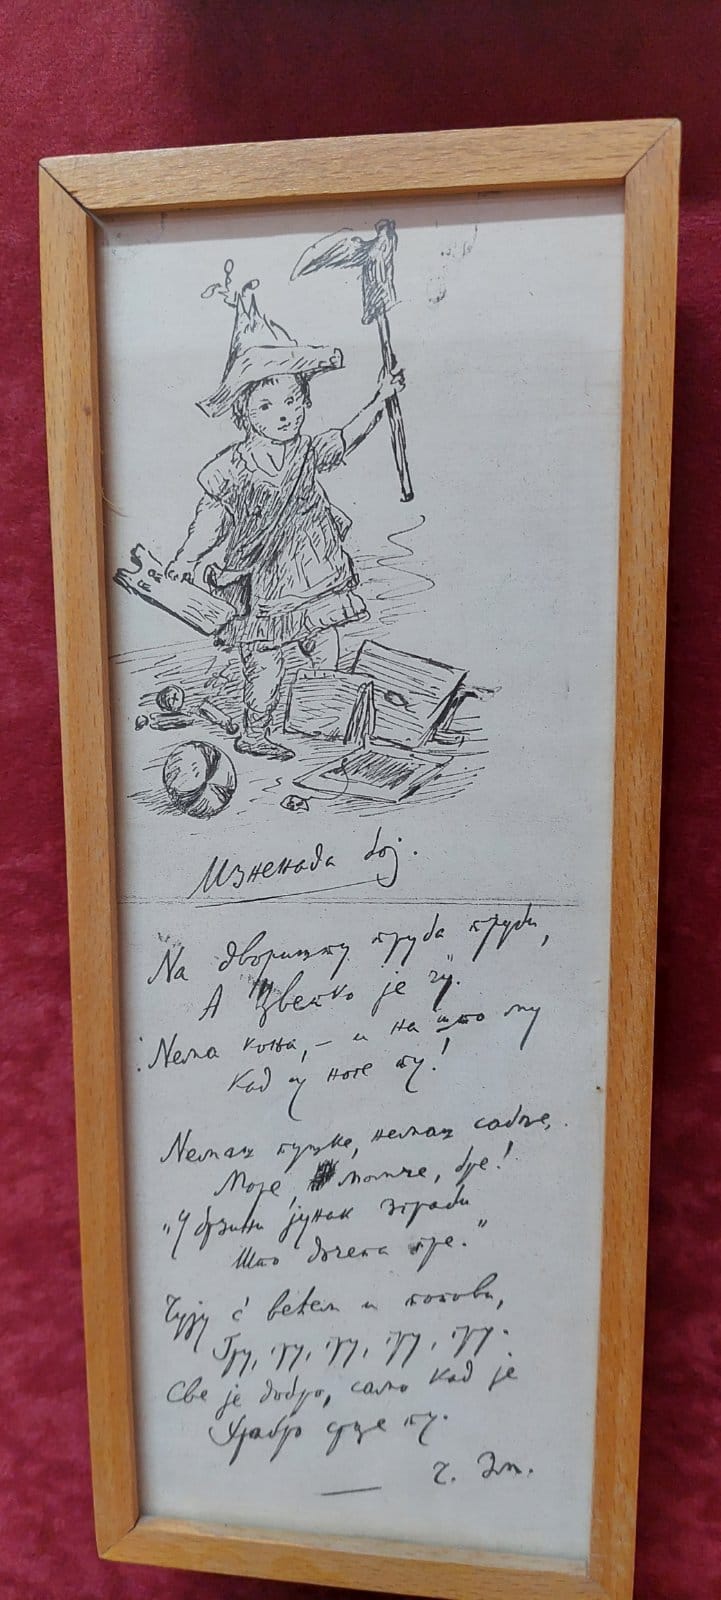 Изненада бој.
На дворишту труба труби,
А Цветко је чу.
Нема коња, – и на што му
Кад су ноге ту!
Немаш пушке, немаш сабље,
Море, момче, бре!
"У брзини јунак зграби
Што дочепа пре."
Чују с' већем и топови,
Гру, гру, гру, гру, гру.
Све је добро, само кад је
Храбро срце ту.
ч. Зм.